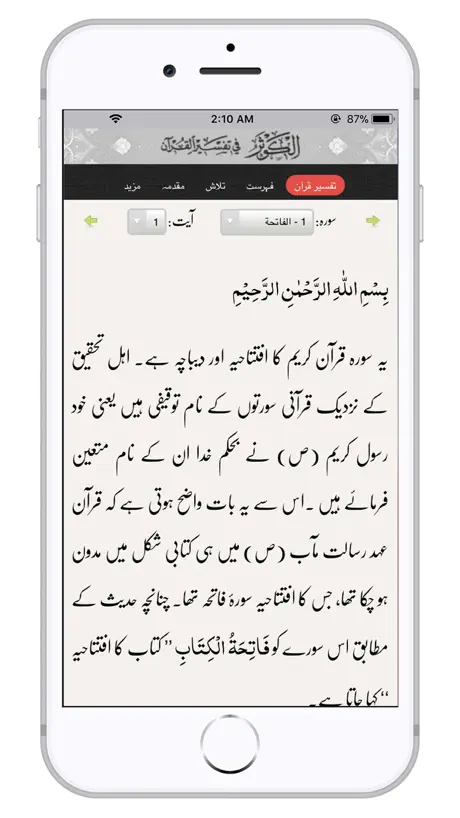 2:10 AM 87%
الکوثر فی تفسیر القرآن
تفسیر قرآن فہرست تلاش مقدمہ مزید
سورہ: 1 - الفاتحة آیت: 1
بِسْمِ اللّٰهِ الرَّحْمٰنِ الرَّحِيْمِ
یہ سورہ قرآن کریم کا افتتاحیہ اور دیباچہ ہے۔ اہل تحقیق
کے نزدیک قرآنی سورتوں کے نام توقیفی ہیں یعنی خود
رسول کریم (ص) نے بحکم خدا ان کے نام متعین
فرمائے ہیں ۔اس سے یہ بات واضح ہوتی ہے کہ قرآن
عہد رسالت مآب (ص) میں ہی کتابی شکل میں مدون
ہو چکا تھا، جس کا افتتاحیہ سورۂ فاتحہ تھا۔ چنانچہ حدیث کے
مطابق اس سورے کو فَاتِحَةُ الْكِتَابِ ’’ کتاب کا افتتاحیہ
‘‘ کہا جاتا ہے۔